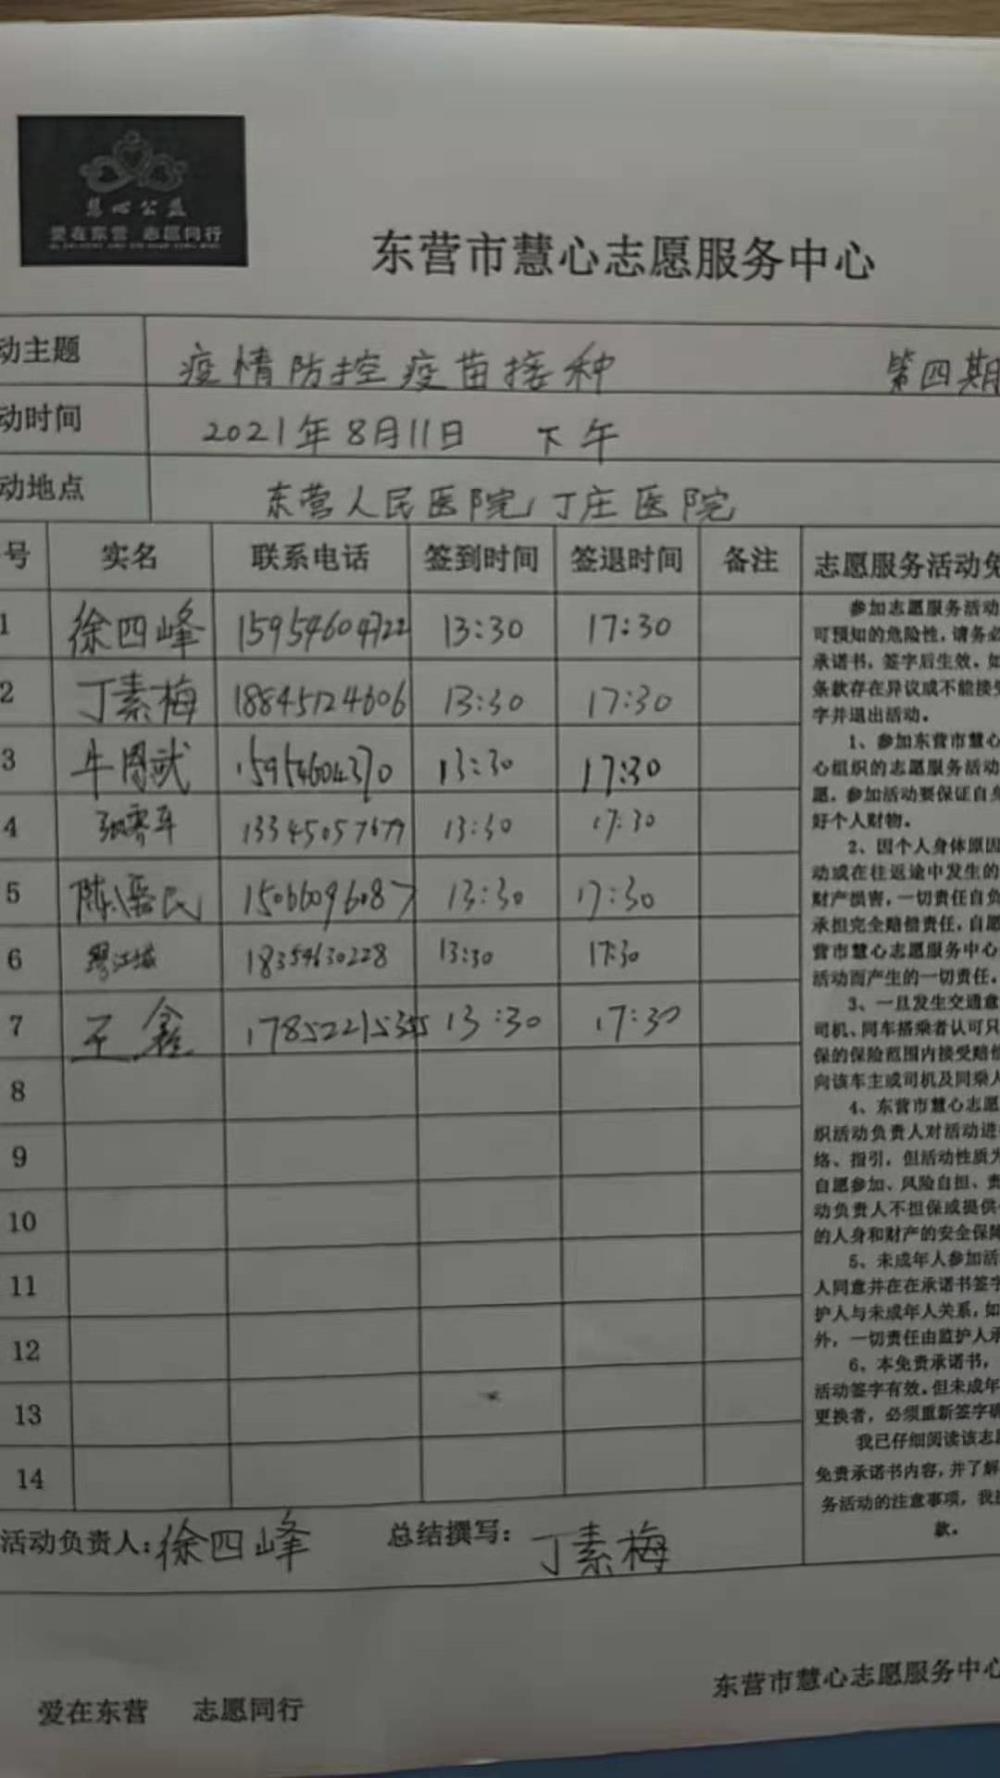 慧心公益
爱在东营 志愿同行
东营市慧心志愿服务中心
动主题 疫情防控疫苗接种 第四期
动时间 2021年8月11日 下午
动地点 东营人民医院 丁庄医院
号 实名 联系电话 签到时间 签退时间 备注 志愿服务活动免
1 徐四峰 15954604722 13:30 17:30
2 丁素梅 18845124606 13:30 17:30
3 牛周武 15954604370 13:30 17:30
4 13345057677 13:30 17:30
5 15066096087 13:30 17:30
6 18354630228 13:30 17:30
7 王鑫 17852215355 13:30 17:30
8
9
10
11
12
13
14
参加志愿服务活动
可预知的危险性，请务必
承诺书，签字后生效，如
条款存在异议或不能接受
字并退出活动。
1、参加东营市慧心
心组织的志愿服务活动
愿，参加活动要保证自身
好个人财物。
2、因个人身体原因
动或在往返途中发生的
财产损害，一切责任自负
承担完全赔偿责任，自愿
营市慧心志愿服务中心
活动而产生的一切责任。
3、一旦发生交通意
司机、同车搭乘者认可只
保的保险范围内接受赔偿
向该车主或司机及同乘人
4、东营市慧心志愿
织活动负责人对活动进
络、指引，但活动性质为
自愿参加、风险自担、责
动负责人不担保或提供
的人身和财产的安全保障
5、未成年人参加活
人同意并在在承诺书签字
护人与未成年人关系，如
外，一切责任由监护人承
6、本免责承诺书，
活动签字有效。但未成年
更换者，必须重新签字确
我已仔细阅读该志愿
免责承诺书内容，并了解
务活动的注意事项，我
款。
活动负责人：徐四峰 总结撰写：丁素梅
爱在东营 志愿同行 东营市慧心志愿服务中心